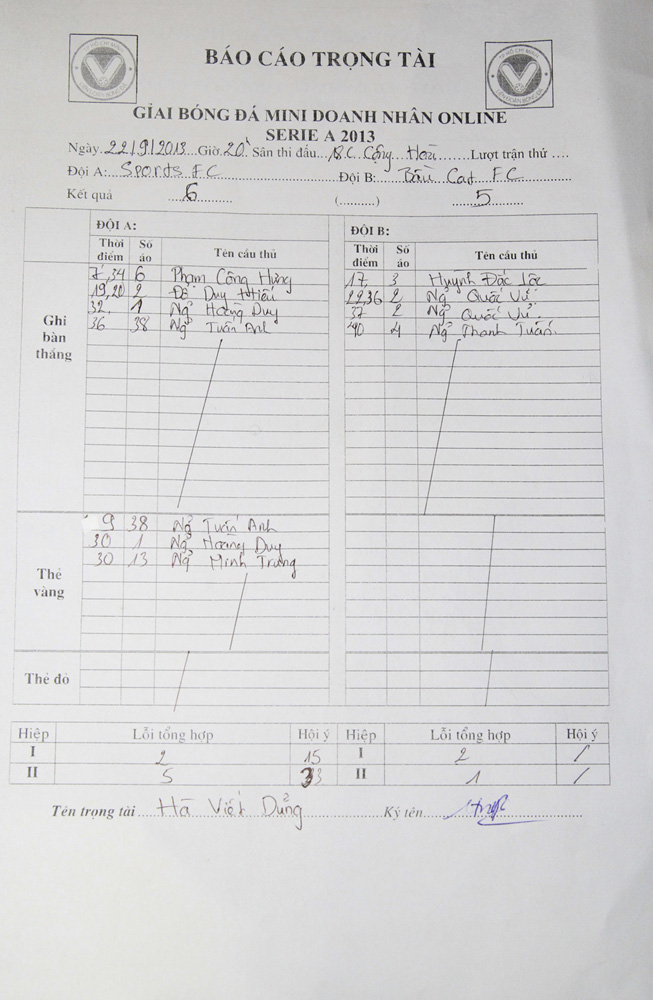 BÁO CÁO TRỌNG TÀI
GIẢI BÓNG ĐÁ MINI DOANH NHÂN ONLINE
SERIE A 2013
Ngày 22/9/2013 Giờ 20' Sân thi đấu Cộng Hoà Lượt trận thứ ....
Đội A: Sports FC Đội B: Bàu Cat FC
Kết quả 6 (..........) 5
ĐỘI A: ĐỘI B:
Thời điểm Số áo Tên cầu thủ Thời điểm Số áo Tên cầu thủ
Ghi bàn thắng
7,34 6 Phạm Công Hưng 17 3 Huỳnh Đắc Lộc
19,20 2 Đỗ Duy Hiếu 22,36 2 Ng̉ Quốc Vũ
32 1 Ng̉ Hoàng Duy 37 2 Ng̉ Quốc Vũ
36 38 Ng̉ Tuấn Anh 40 4 Ng̉ Thanh Tuấn
Thẻ vàng
9 38 Ng̉ Tuấn Anh
30 1 Ng̉ Hoàng Duy
30 13 Ng̉ Minh Trung
Thẻ đỏ
Hiệp Lỗi tổng hợp Hội ý Hiệp Lỗi tổng hợp Hội ý
I 2 15 I 2 /
II 5 33 II 1 /
Tên trọng tài Hà Viết Dũng Ký tên